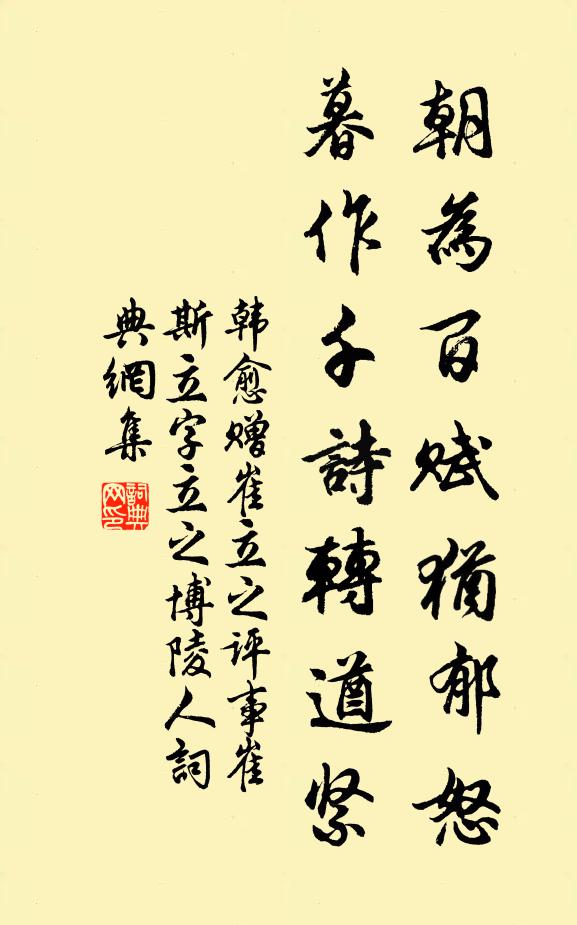 朝為百賦猶郁怒
暮作千詩轉遒紧
韩愈赠崔立之评事崔
斯立字立之博陵人詞
典網集
詞典网印